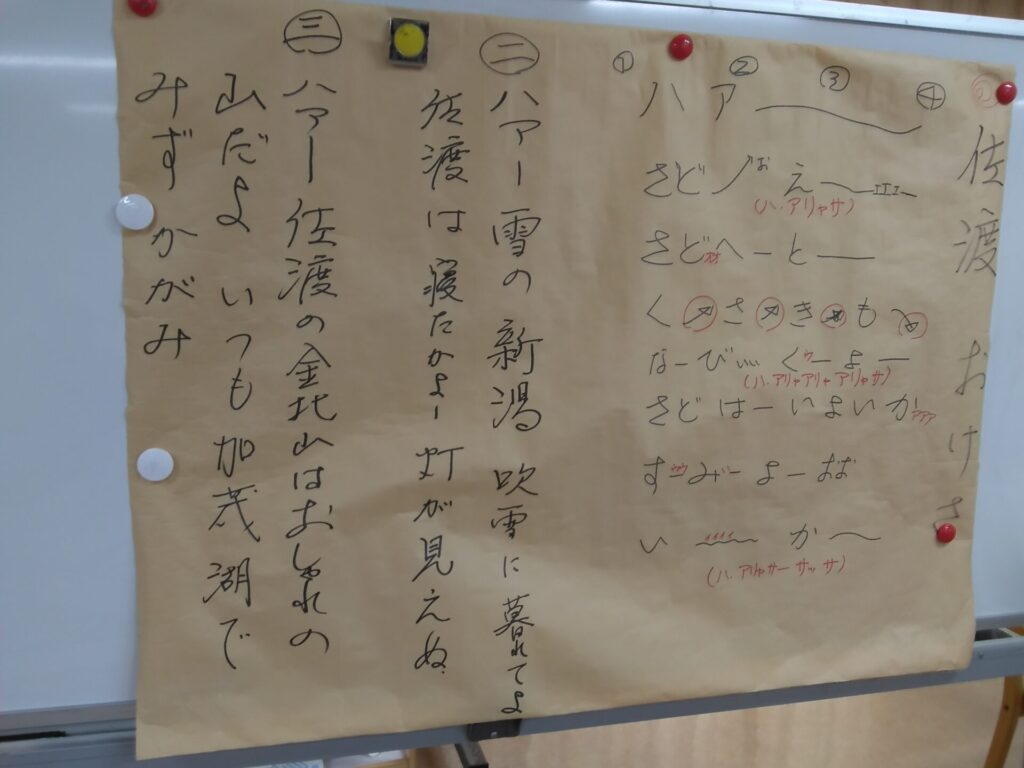 佐渡おけさ
① ② ③ ④
ハア
さど え
(ハ、アリャサ)
さどへーと
く さ き も
なーびぃぃぃ ぐーよー
(ハ、アリャアリャ アリャサ)
さどはーいよいか アアア
ずーみーよーおば
い か
(ハ、アリャサーサッサ)
二 ハアー 雪の新潟 吹雪に暮れてよ
佐渡は 寝たかよー 灯が見えぬ
三 ハアー 佐渡の金北山はおしゃれの
山だよ いつも加茂湖で
みずかがみ